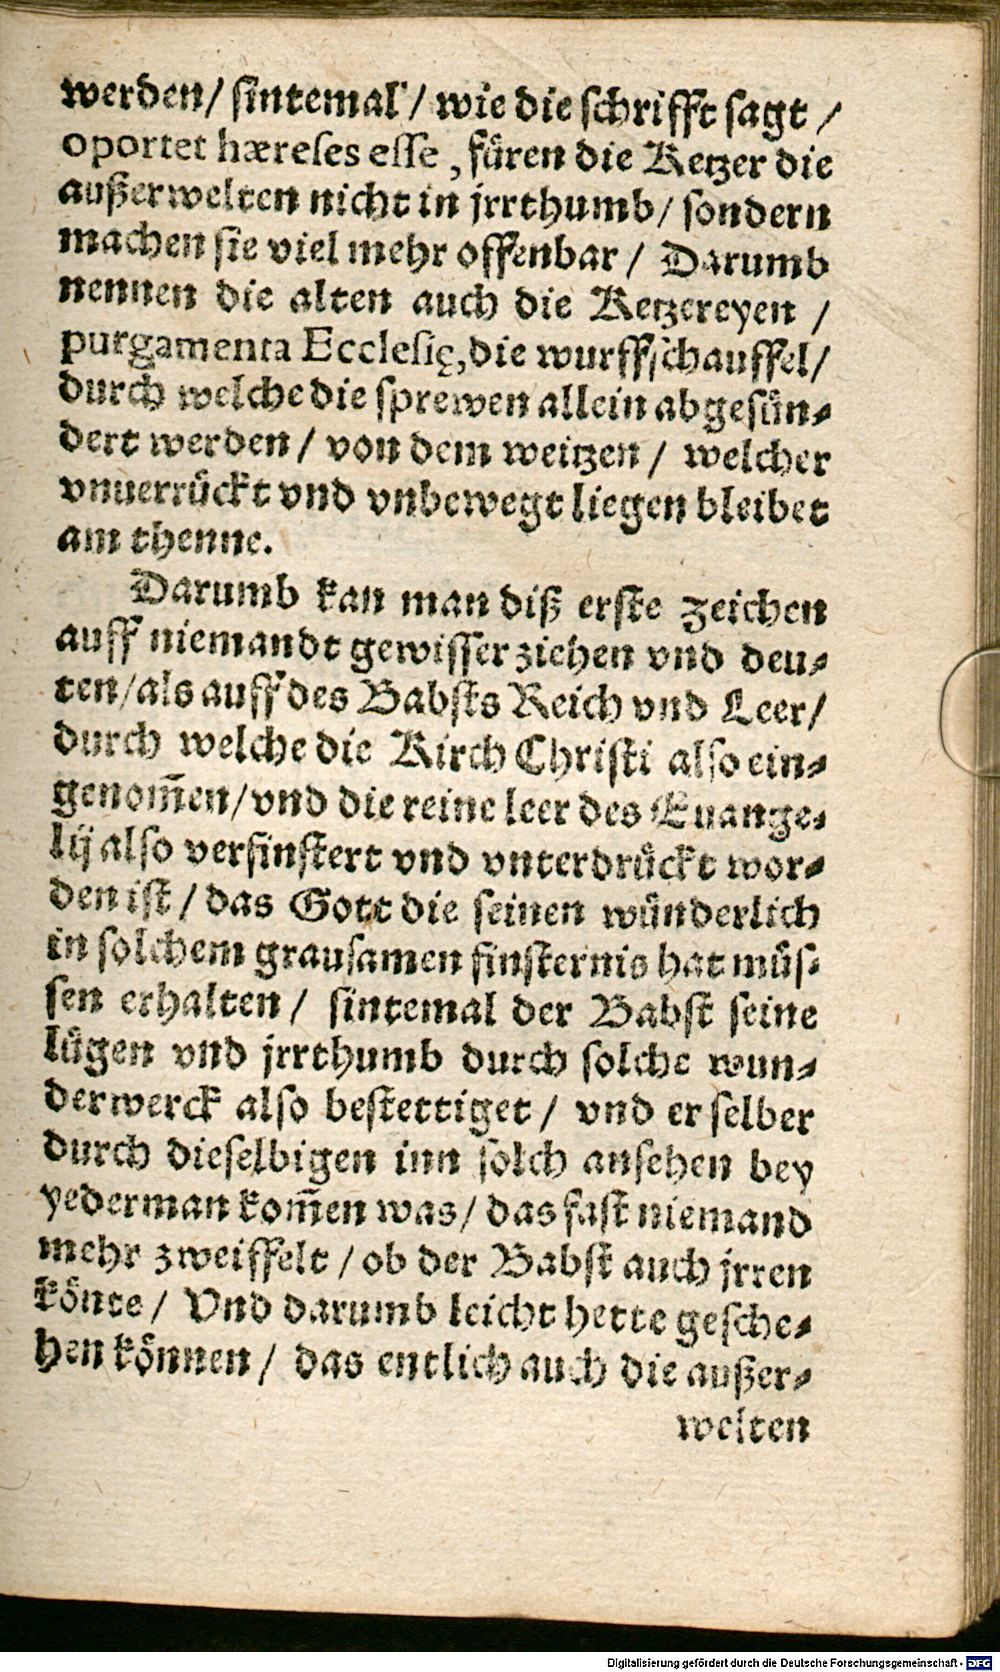 werden/ sintemal / wie die schrifft sagt /
oportet hæreses esse, füren die Ketzer die
außerwelten nicht in jrrthumb/ sondern
machen sie viel mehr offenbar / Darumb
nennen die alten auch die Ketzereyen /
purgamenta Ecclesię, die wurffschauffel/
durch welche die sprewen allein abgesün-
dert werden / von dem weitzen / welcher
vnuerrückt vnd vnbewegt liegen bleibet
am thenne.
Darumb kan man diß erste zeichen
auff niemandt gewisser ziehen vnd deu-
ten/ als auff des Babsts Reich vnd Leer/
durch welche die Kirch Christi also ein-
genom̄en/ vnd die reine leer des Euange-
lij also verfinstert vnd vnterdrückt wor-
den ist / das Gott die seinen wünderlich
in solchem grausamen finsternis hat müs-
sen erhalten / sintemal der Babst seine
lügen vnd jrrthumb durch solche wun-
derwerck also bestettiget / vnd er selber
durch dieselbigen inn solch ansehen bey
yederman kom̄en was/ das fast niemand
mehr zweiffelt / ob der Babst auch jrren
könte / Vnd darumb leicht hette gesche-
hen können / das entlich auch die außer-
welten
Digitalisierung gefördert durch die Deutsche Forschungsgemeinschaft - DFG